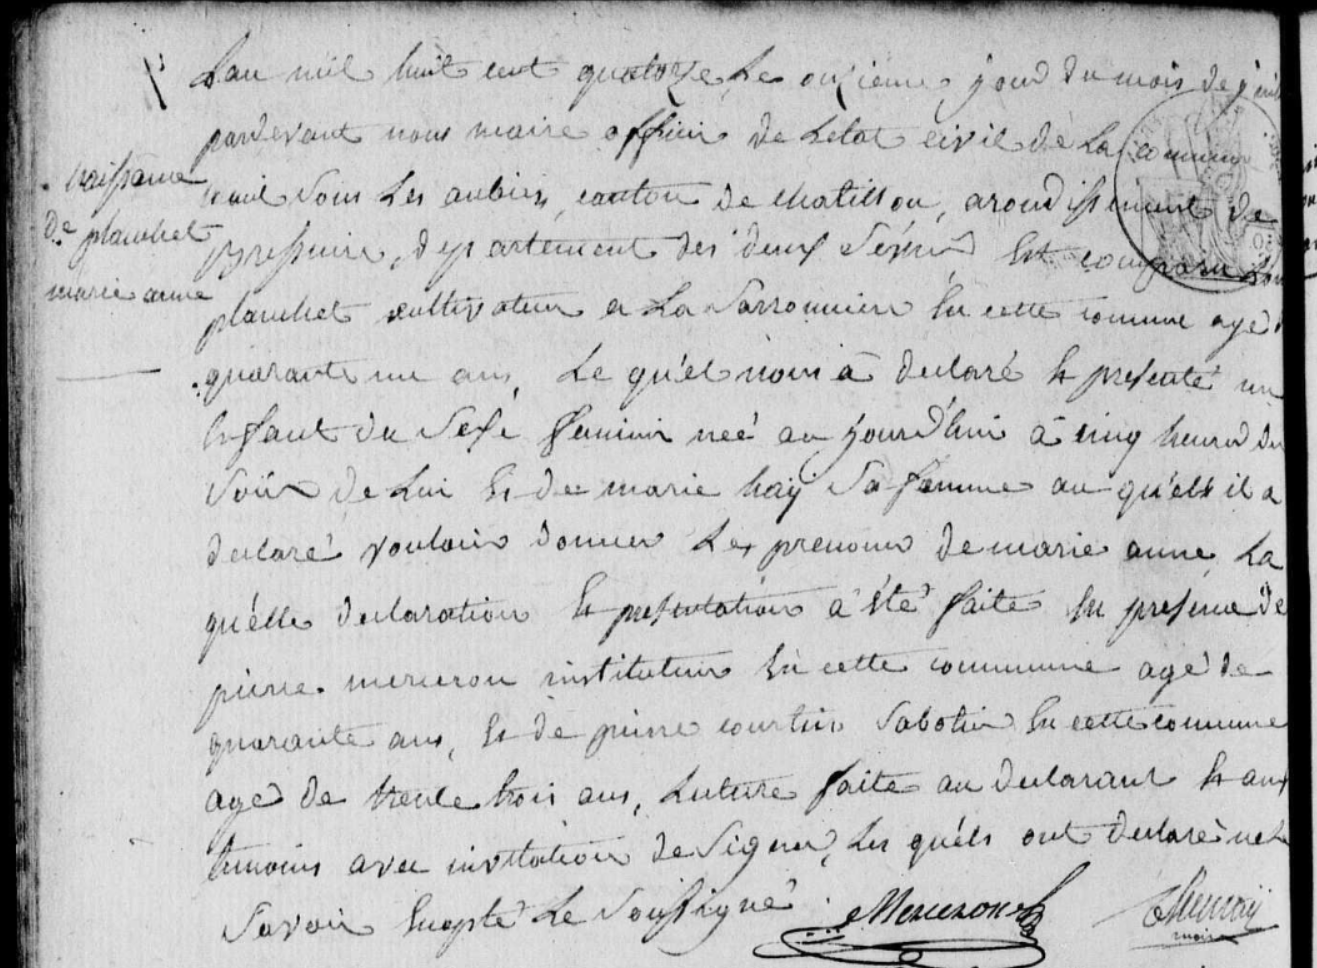 L'an mil huit cent quatorze Le onzieme jour du mois de
pardevant nous maire officier de Letat civil de La commune
naissance
de planchet
marie anne
sous Les aubiers, canton de chatillon, arondissement de
Bressuire, departement des deux Sevres Est comparu
planchet cultivateur a La Sarronniere En cette commune agé
quarante un ans, Le qu'el nous à declaré Et presenté un
Enfant du Sexe feminin neé au jourd'hui à cinq heures du
Soir de Lui Et de marie hay Sa femme au qu'elle il a
declaré vouloir donner Les prenoms de marie anne La
qu'elle declaration Et presentation a été faite En presence de
pierre merceron instituteur En cette commune agé de
quarante ans, Et de pierre courtin Sabotier En cette commune
agé de trente trois ans, Lecture faite au declarant Et aux
temoins avec invitation de Signer, Les quéls ont declaré ne
Savoir Excepté Le Soussigné.
Merceron
maire